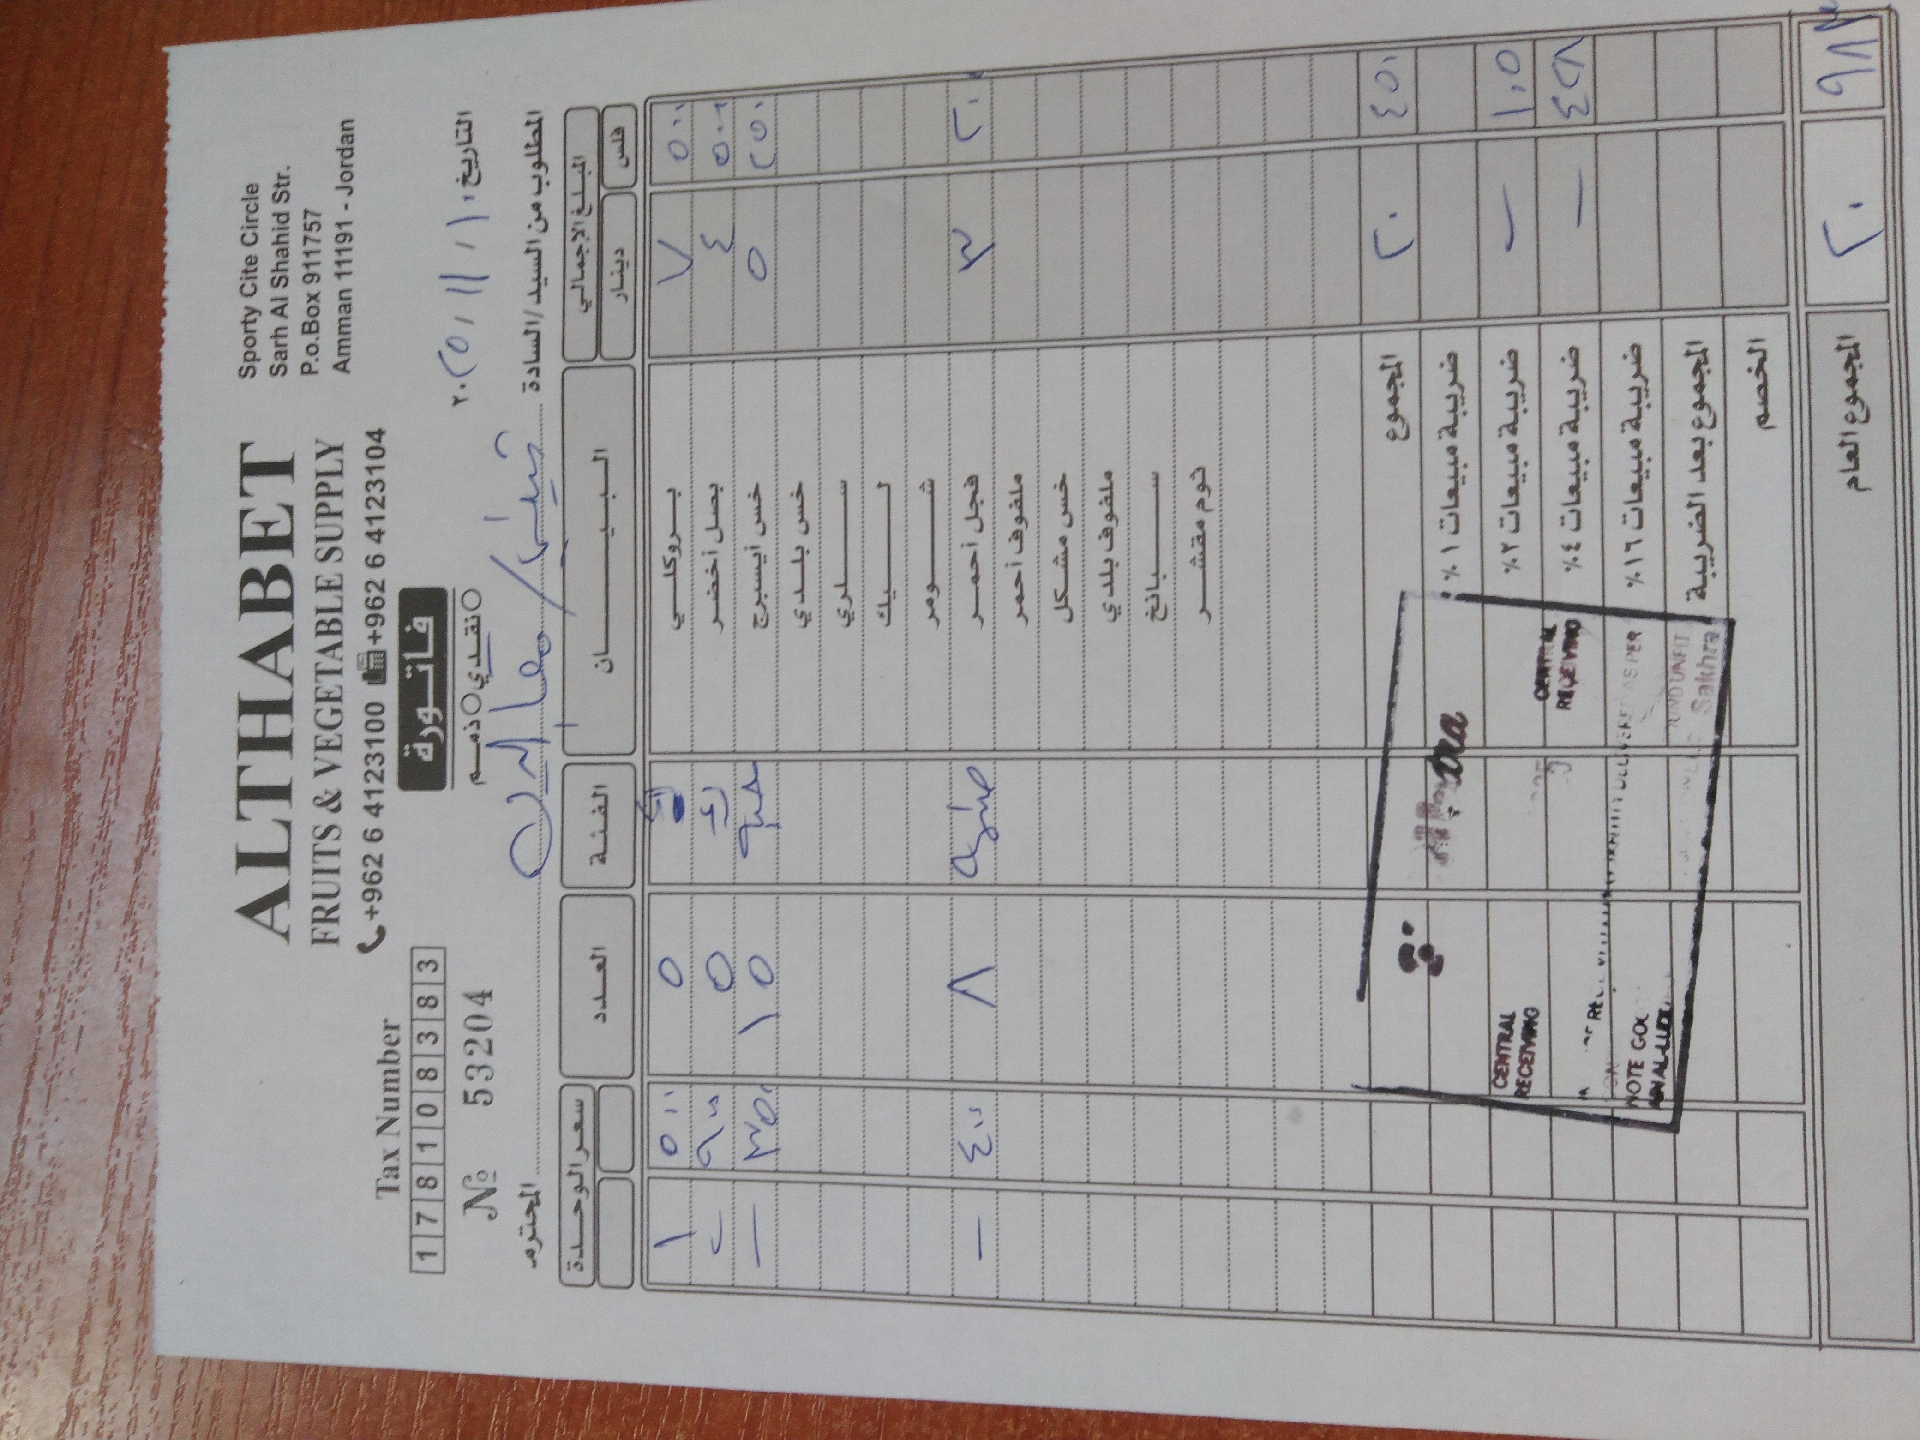 ALTHABET
FRUITS & VEGETABLE SUPPLY
+962 6 4123100 +962 6 4123104
Sporty Cite Circle
Sarh Al Shahid Str.
P.o.Box 911757
Amman 11191 - Jordan
Tax Number
1 7 8 1 0 8 3 8 3
№ 53204
فاتورة
ذمم نقدي
التاريخ: ١٠ / ١١ / ٢٠٢٥
المطلوب من السيد/السادة المحترم
المبلغ الإجمالي البيان الفئة العدد سعر الوحدة
فلس دينار
٥٠٠ ٧ بروكلي ٥ ٥٠٠ ١
٥٠٠ ٤ بصل أخضر ك ٥ ٩٠٠
٢٥٠ ٥ خس أيسبرج حبة ١٥ ٣٥٠ —
خس بلدي
سلري
ليك
شومر
٢٠٠ ٣ فجل أحمر ٨ ٤٠٠ —
ملفوف أحمر
خس مشكل
ملفوف بلدي
سبانخ
ثوم مقشر
٤٥٠ ٢٠ المجموع
ضريبة مبيعات ١ %
١٠٥ — ضريبة مبيعات ٢ %
٤٢٨ — ضريبة مبيعات ٤ %
ضريبة مبيعات ١٦ %
المجموع بعد الضريبة
الخصم
٢٠ المجموع العام
CENTRAL RECEIVING
CENTRAL RECEIVING
NOTE
Sakhra